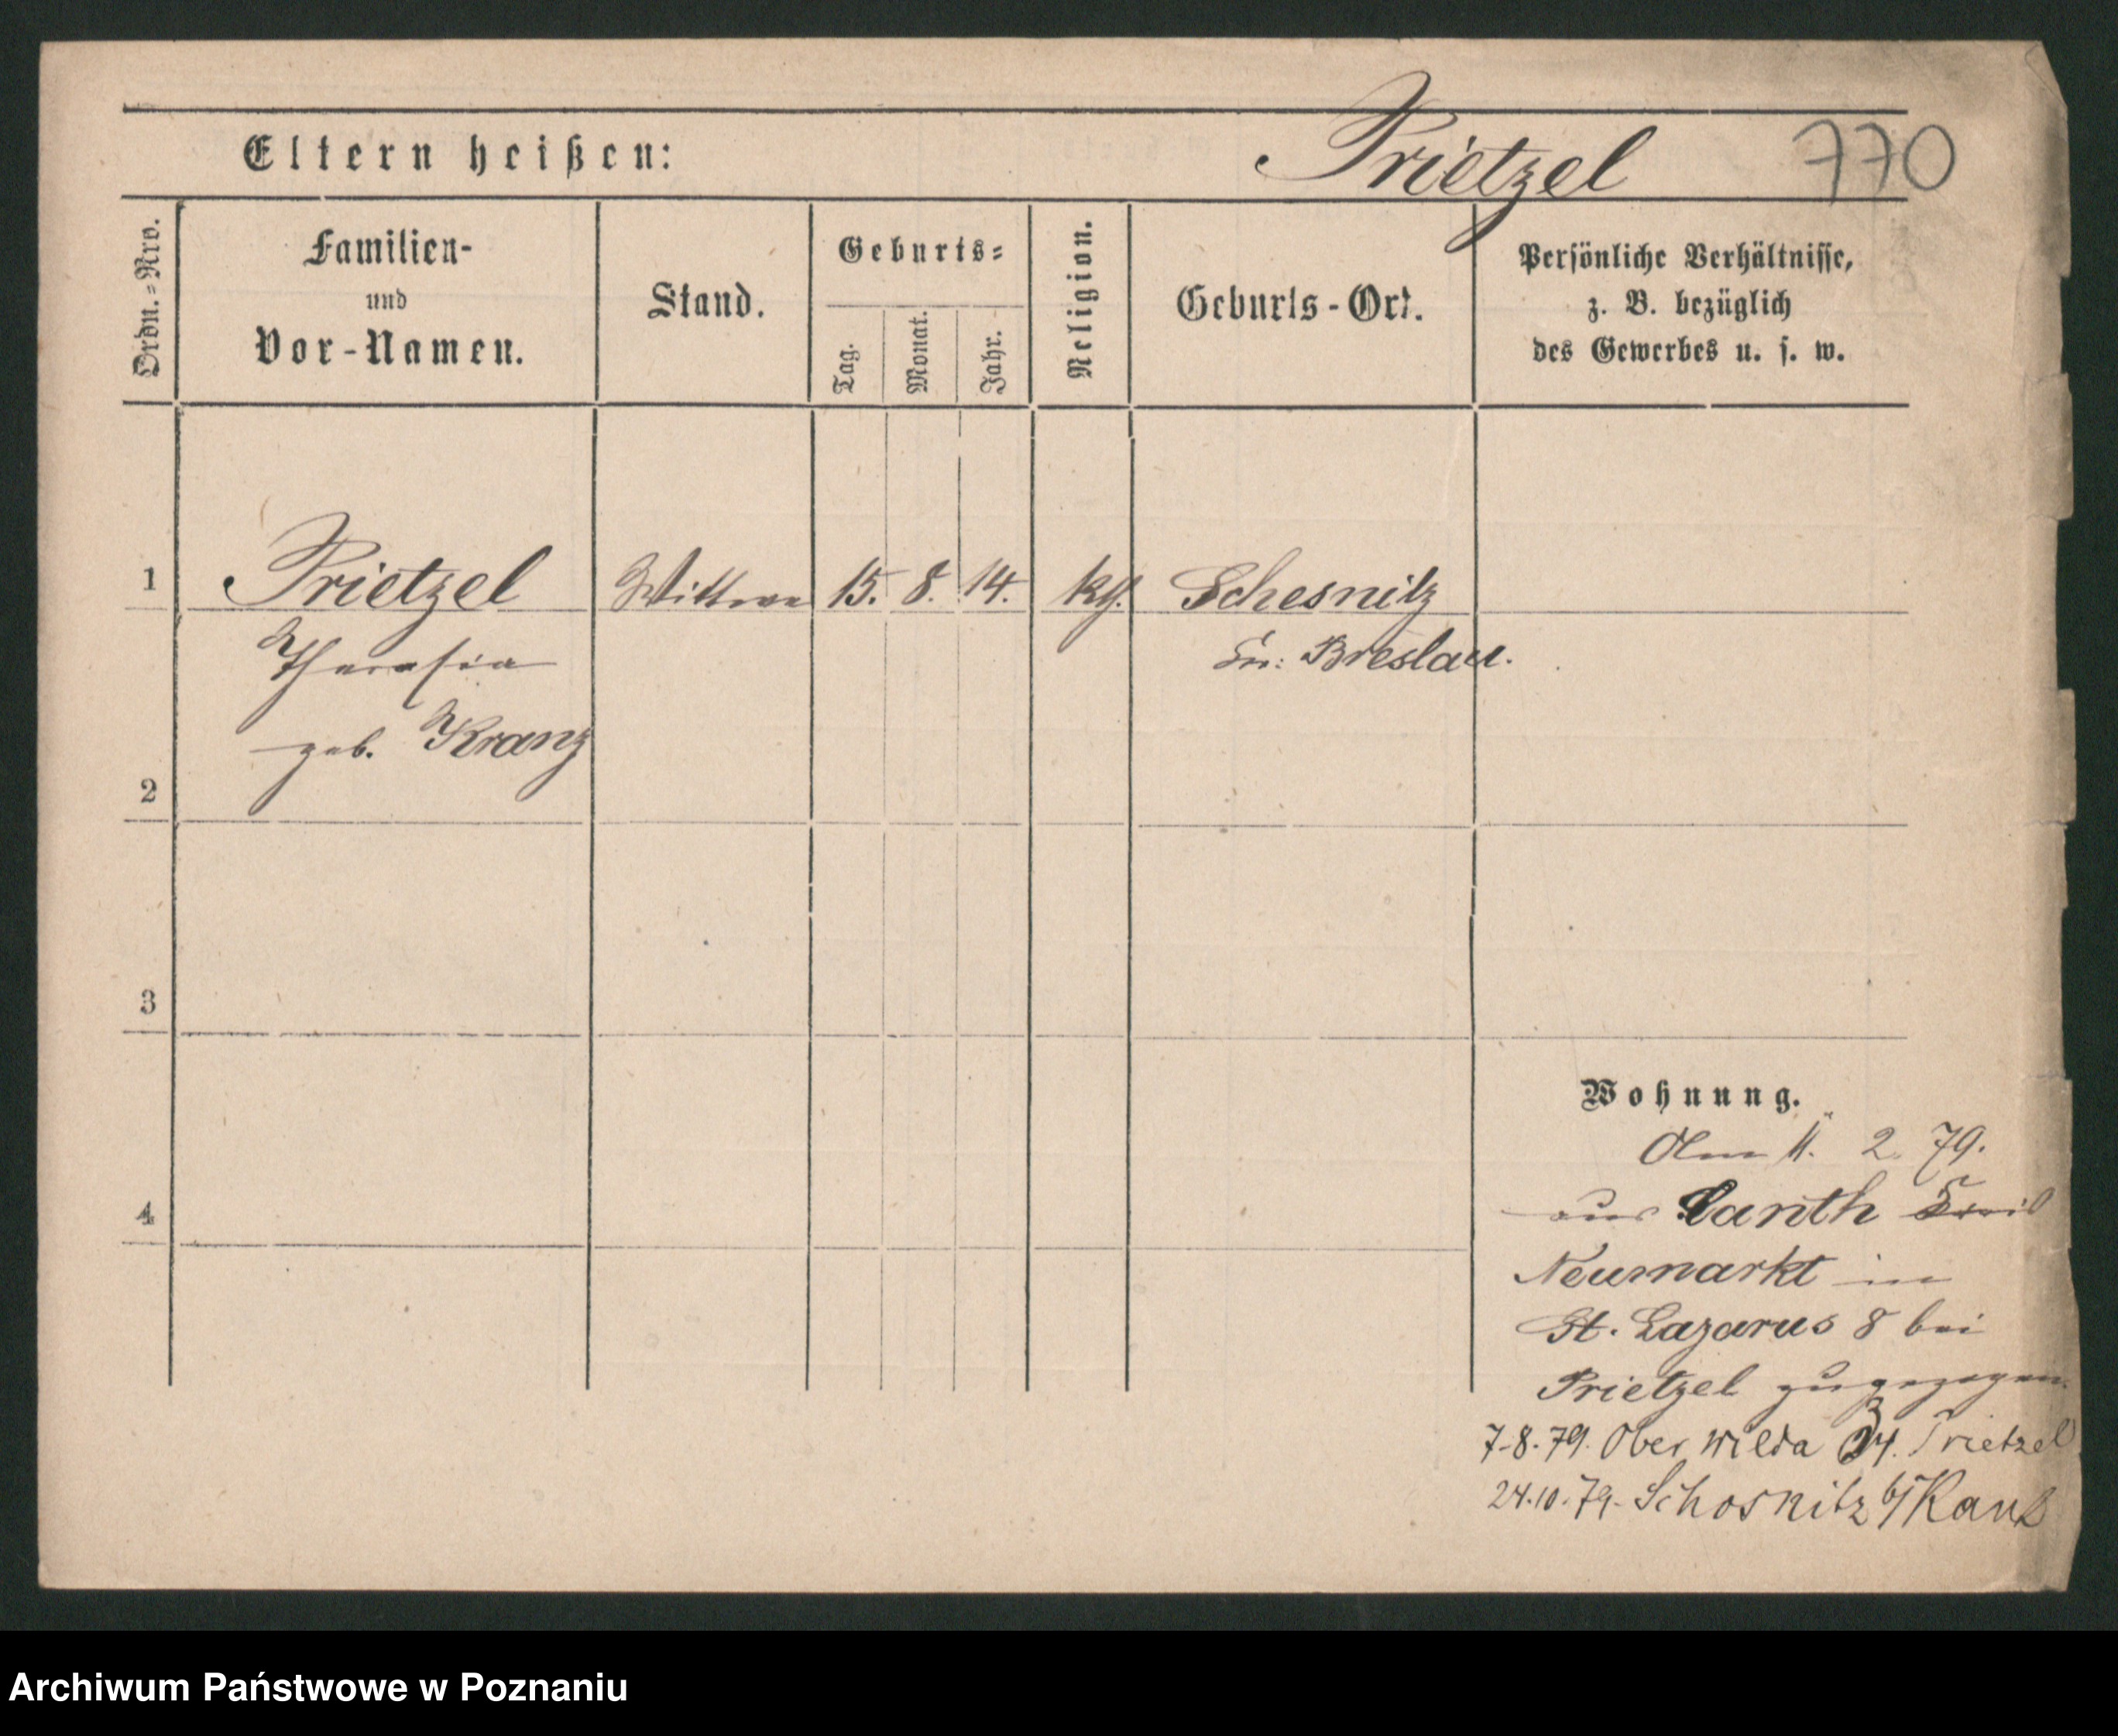 Eltern heißen: Prietzel 770
Ordn.=Nro.
Familien- und Vor-Namen.
Stand.
Geburts=
Tag.
Monat.
Jahr.
Religion.
Geburts-Ort.
Persönliche Verhältnisse,
z. B. bezüglich
des Gewerbes u. s. w.
1 Prietzel Wittwe 15. 8. 14. kth. Schesnitz
Theresia Kr: Breslau.
geb. Kranz
2
3
4
Wohnung.
Am 11. 2. 79.
aus Canth Kreis
Neumarkt in
St. Lazarus 8 bei
Prietzel zugezogen.
7-8.79. Ober Wilda 34. Prietzel
24.10.79. Schosnitz b/Kant
Archiwum Państwowe w Poznaniu